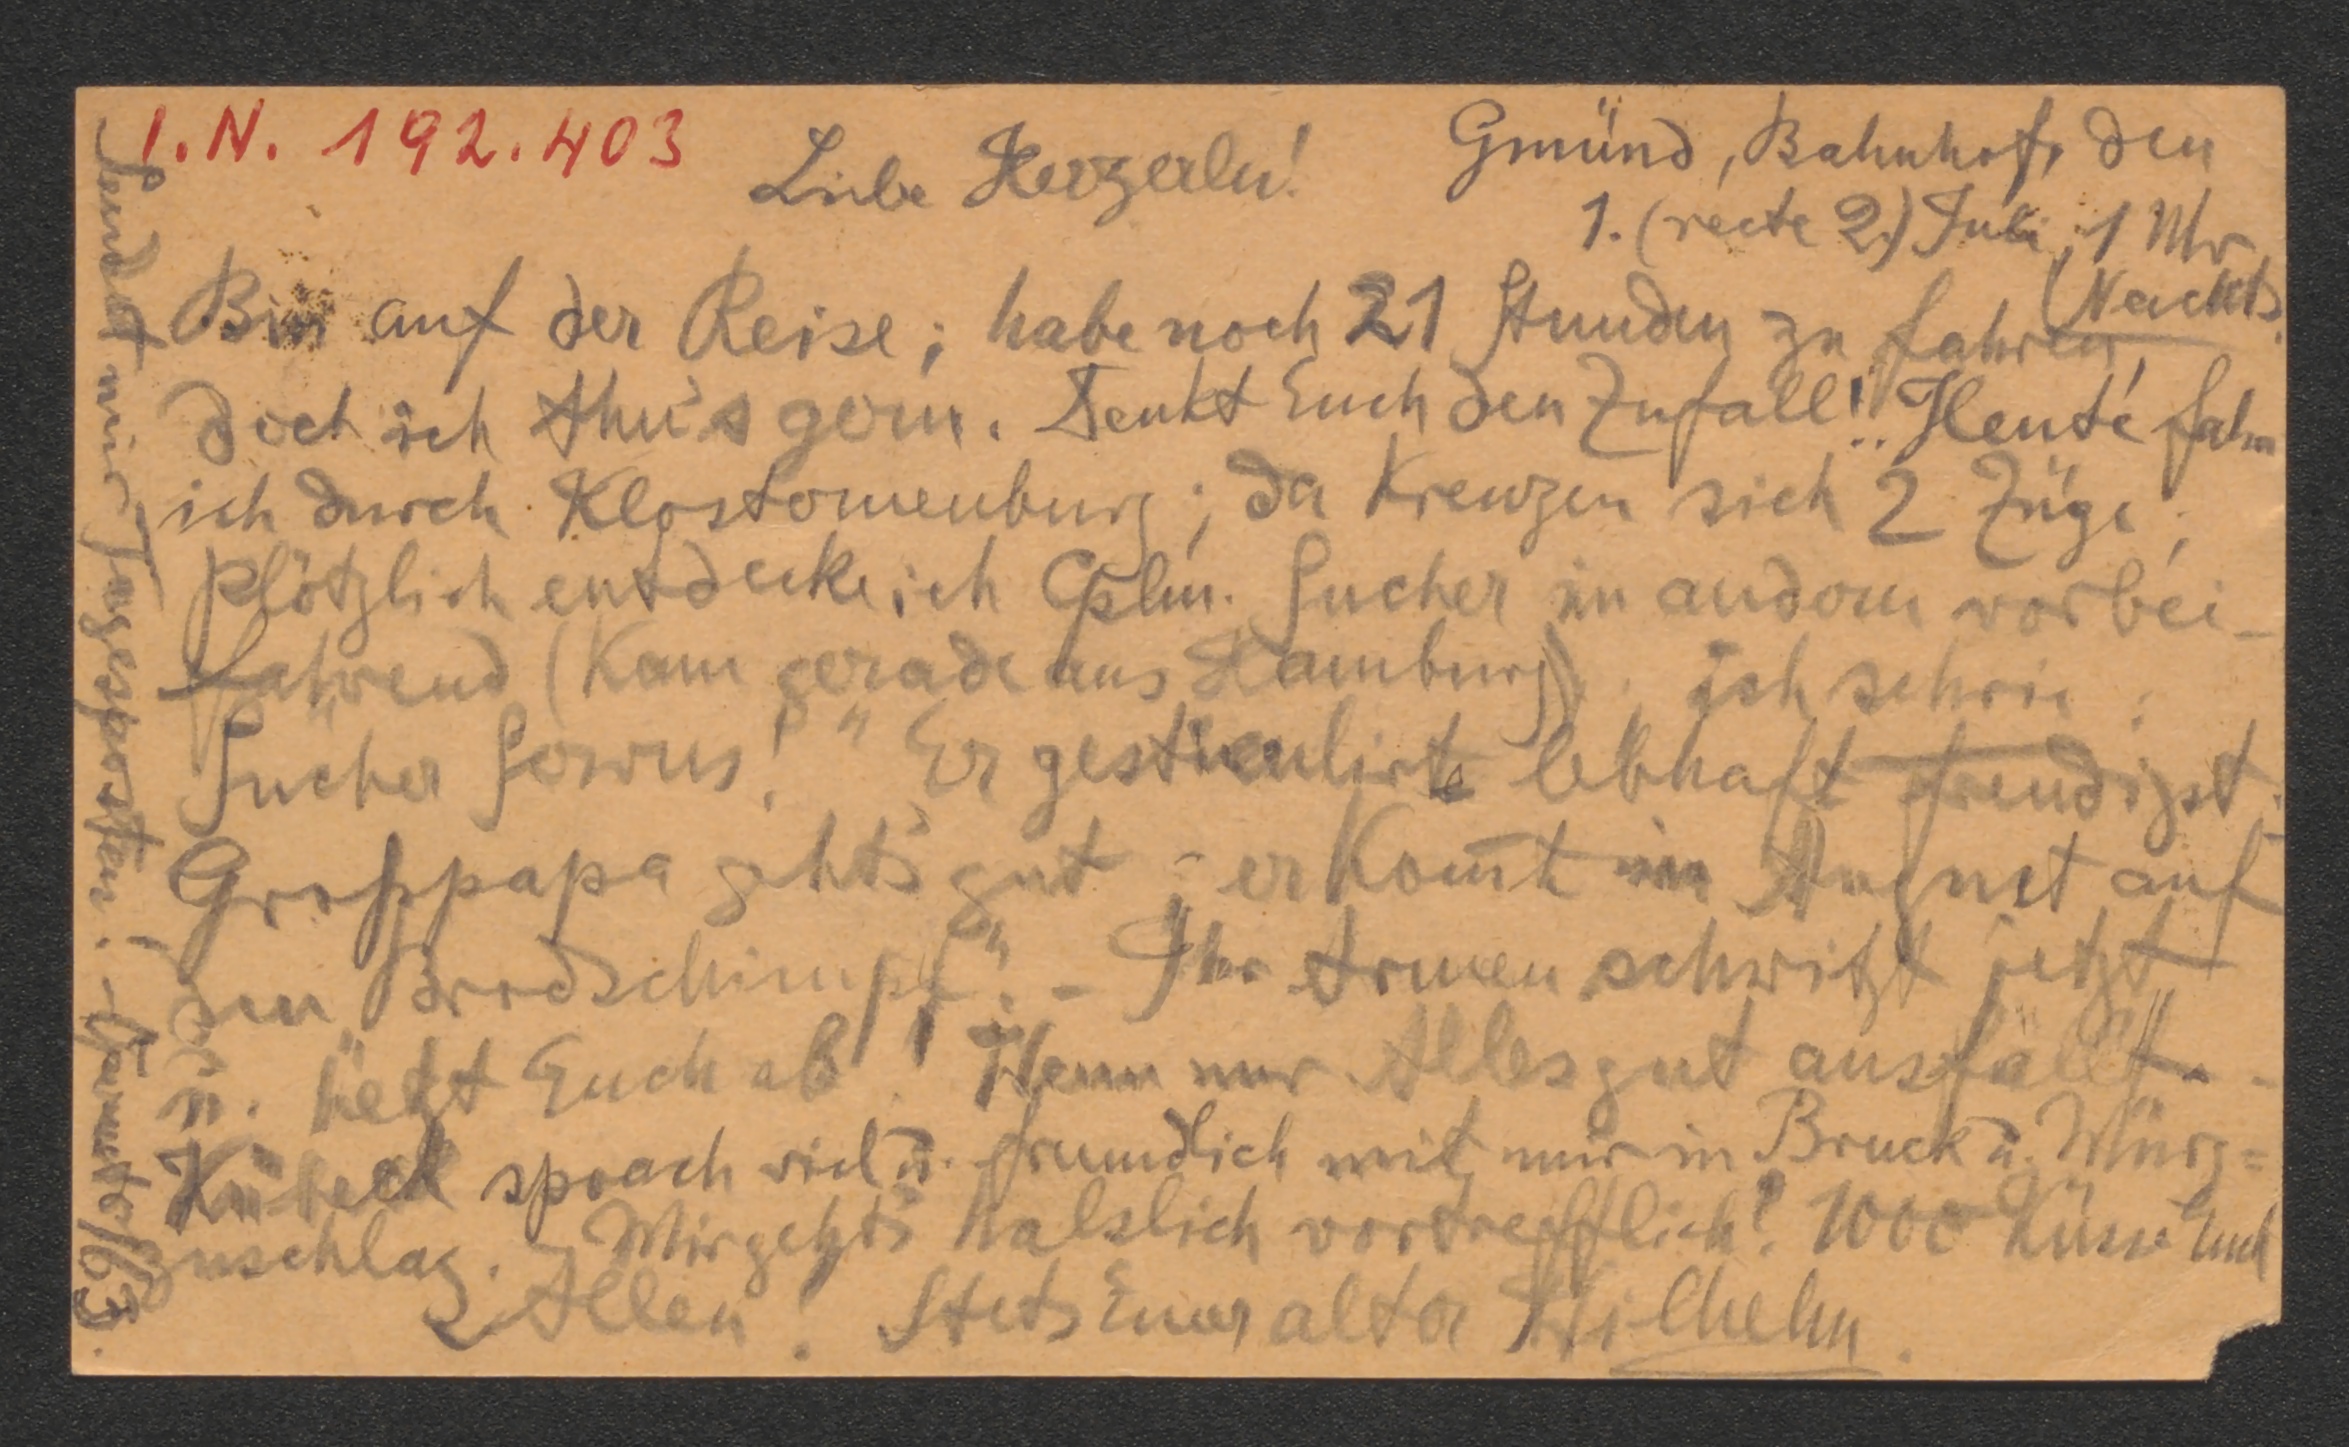 I.N. 192.403
Gmünd, Bahnhof, den
1. (recte 2.) Juli, 1 Uhr
Nachts.
Liebe Herzerln!
Bin auf der Reise; habe noch 21 Stunden zu fahren,
doch ich thu's gern. Denkt Euch den Zufall! Heute fahr
ich durch Klosterneuburg; da kreuzen sich 2 Züge;
plötzlich entdecke ich Cplm. Sucher im andern vorbei-
fahrend (kam gerade aus Hamburg). ich schrie:
"Sucher Servus!" Er gesticulirte lebhaft freudigst:
Großpapa gehts gut - er kom̅t im August auf
den Brodschimpf". - Ihr Armen schwitzt jetzt
u. hetzt Euch ab! Wenn nur Alles gut ausfällt. -
Kübeck sprach viel u. freundlich mit mir in Bruck u. Mürz=
zuschlag. Mir gehts halslich vortrefflich! 1000 Küsse Euch
Allen! Stets Euer alter Wilhelm.
Sendet mir Tagesposten! -